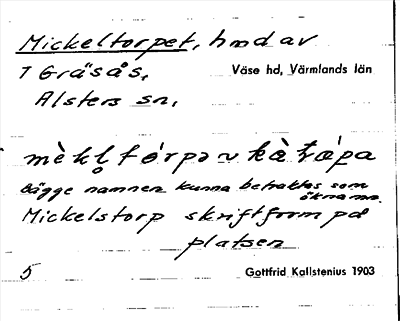 Mickeltorpet, hmd av
1 Gräsås, Väse hd, Värmlands län
Alsters sn,
mèkl̥tórpə ʋ kàtrǽpa
Bägge namnen kunna betraktas som
öknamn.
Mickelstorp skriftform på
platsen
5 Gottfrid Kallstenius 1903